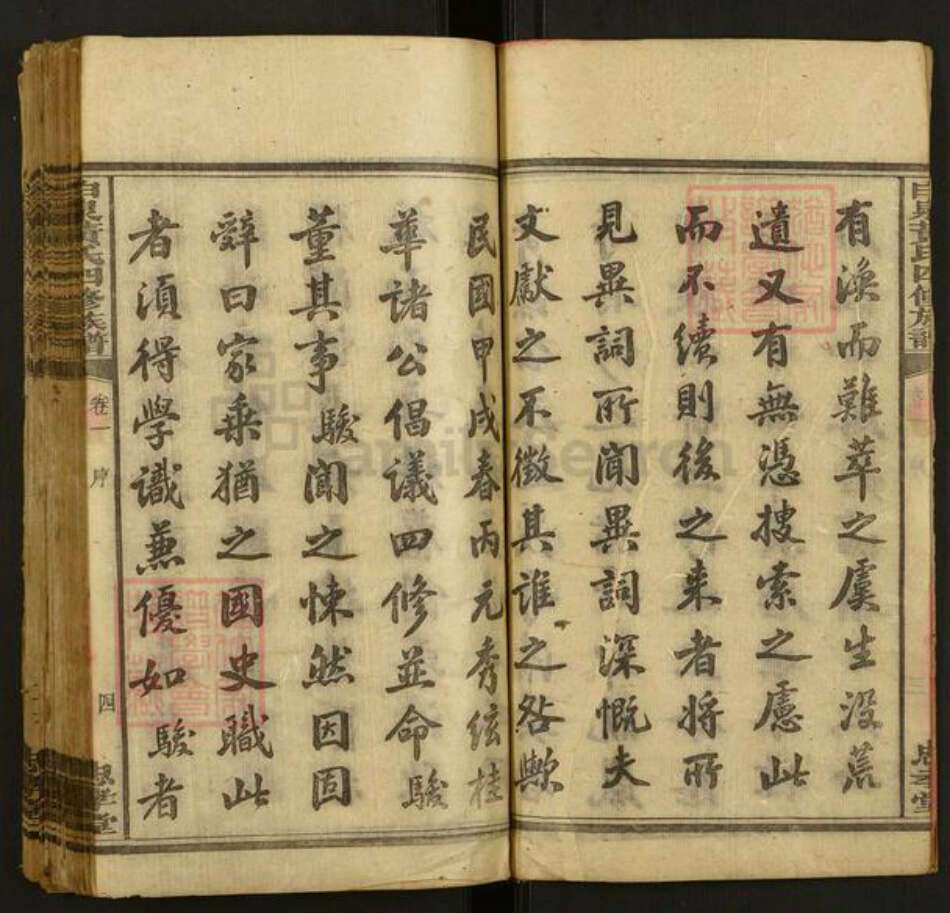 有渙而難萃之虞生沒荒
遺又有無憑搜索之慮此
而不續則後之来者将所
見異詞所聞異詞深慨夫
文獻之不徵其誰之咎歟
民國甲戌春丙元秀絃桂
華諸公倡議四修並命駿
董其事駿聞之悚然因固
辭曰家乘猶之國史職此
者須得學識兼優如駿者
黃氏四修族譜
卷一
序
四
堂